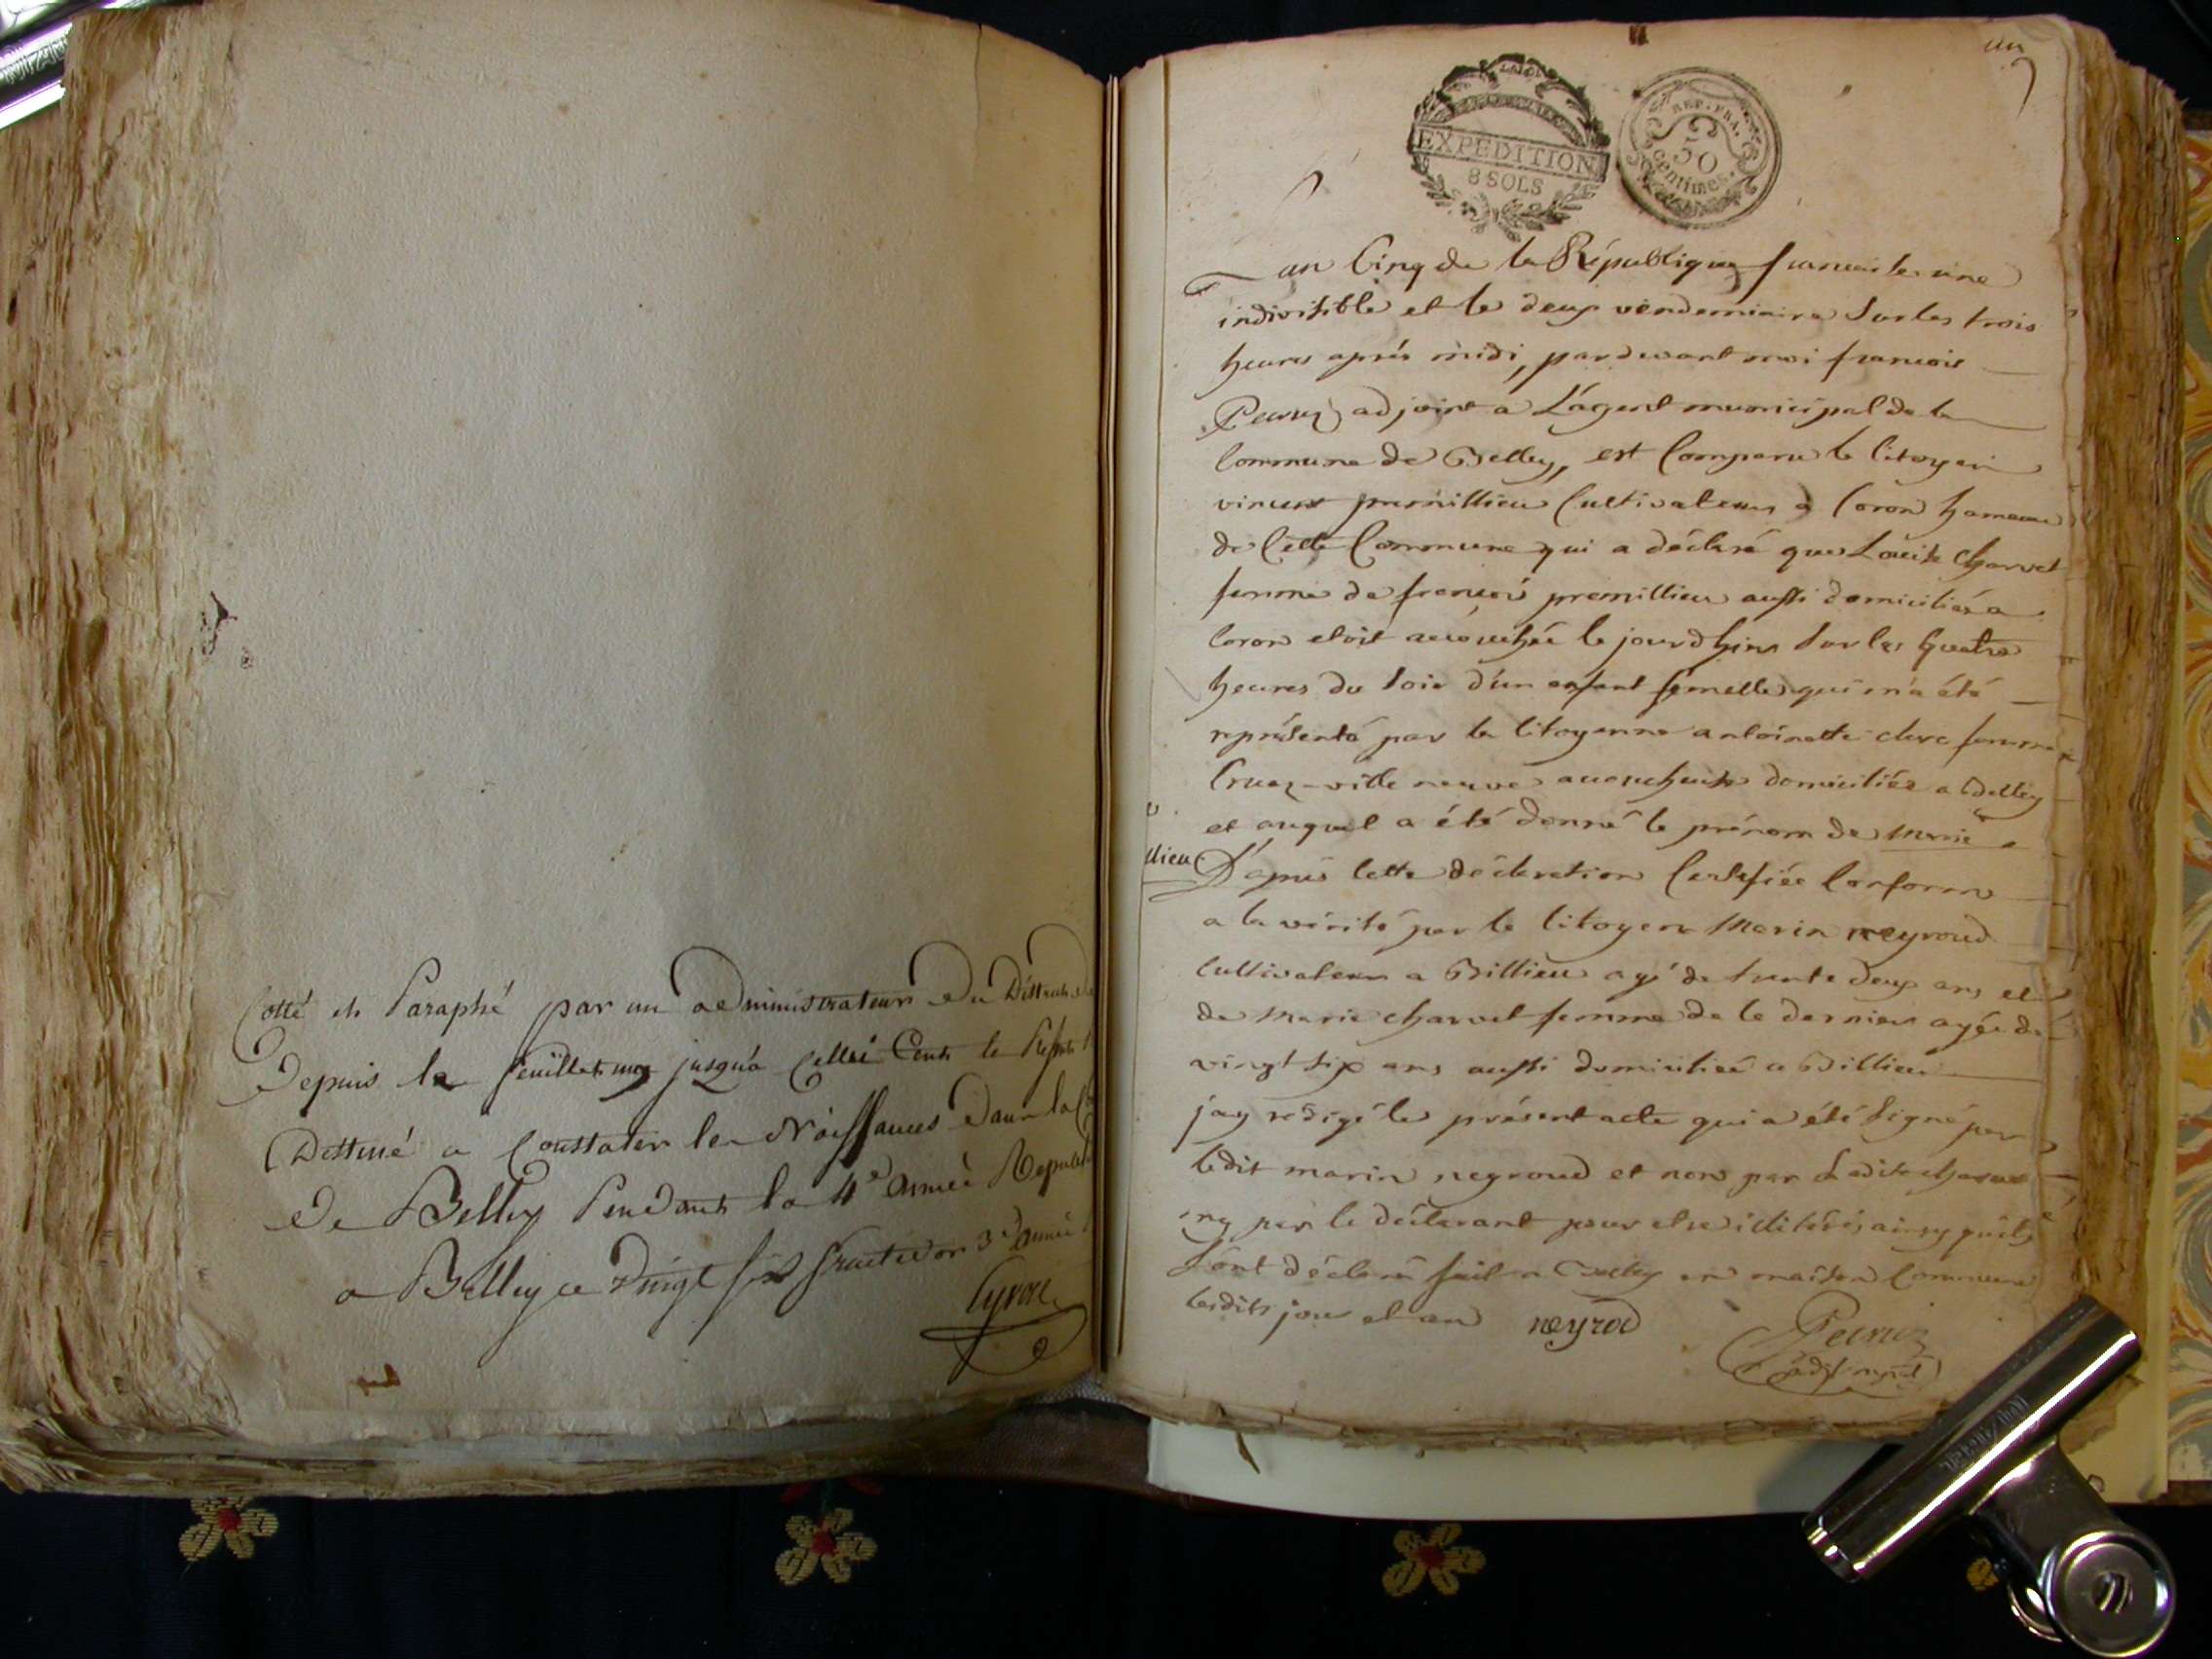 Cotté et Paraphé par un administrateur du District de
Depuis le feuillet un jusqu'a Celui Cent le Present
Destiné a Constater les Naissances dans la
de Belley Pendant la 4e année Republi
a Belley ce vingt six fructidor 3e année
un
EXPEDITION
8 SOLS
REP. FRA.
50
centimes.
L'an Cinq de la République francaise une
indivisible et le deux vendemiaire Sur les trois
heures après midi, pardevant moi francois
adjoint a L'agent municipal de la
Commune de Belley, est Comparu le Citoyen
vincent premillieu Cultivateur a Coron hameau
de Cette Commune qui a déclaré que Louise Charvet
femme de francois premillieu aussi domiciliée a
Coron etoit accouchée le jourdhiers Sur les quatre
heures du Soir d'un enfant femelle qui m'a été
représenté par la Citoyenne antoinette clerc femme
Cruaz-ville neuve accoucheuse domiciliée a Belley
et auquel a été donné le prénom de Marie
llieu
D'apres Cette déclaration Certifiée Conforme
a la vérité par le Citoyen Marin neyroud
Cultivateur a Billieu agé de trente deux ans et
de Marie charvet femme de Ce dernier agée de
vingt six ans aussi domiciliée a Billieu
j'ay redigé le présent acte qui a été Signé par
ledit marin neyroud et non par Ladite charvet
ny par le déclarant pour etre illitérés ainsy qu'ils
Sont déclaré fait a Belley en maison Commune
lesdits jour et an neyrod